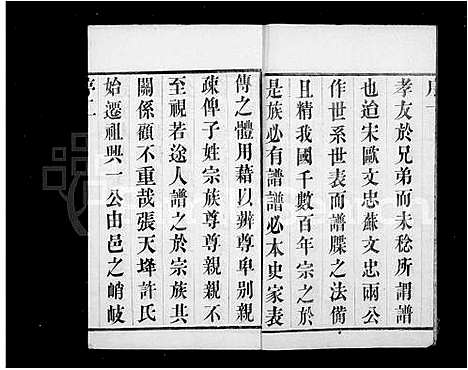 序一
孝友於兄弟而未稔所謂譜
也迨宋歐文忠蘇文忠兩公
作世系世表而譜牒之法備
且精我國千數百年宗之於
是族必有譜譜必本史家表
傳之體用藉以辨尊卑別親
疏俾子姓宗族尊尊親親不
至視若途人譜之於宗族其
關係顧不重哉張天埄許氏
始遷祖興一公由邑之峭岐
序二